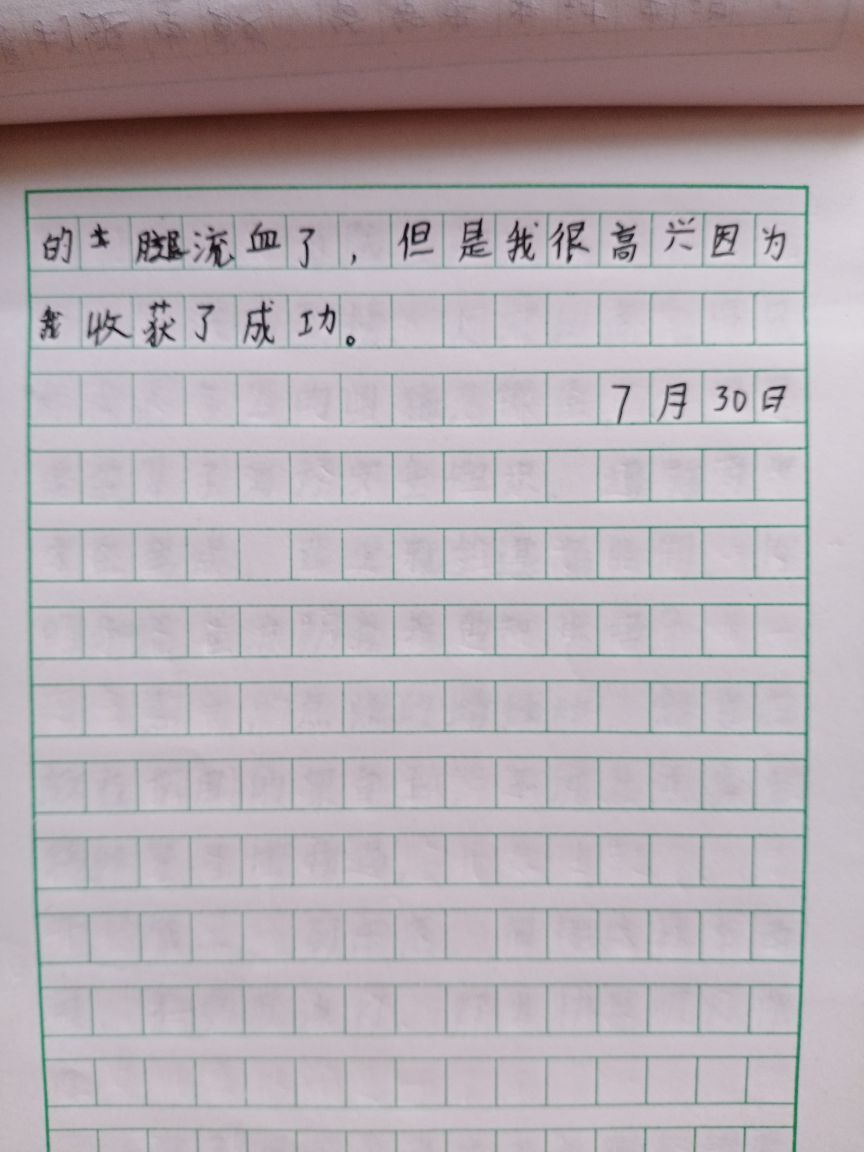 的腿流血了，但是我很高兴因为
我收获了成功。
7月30日